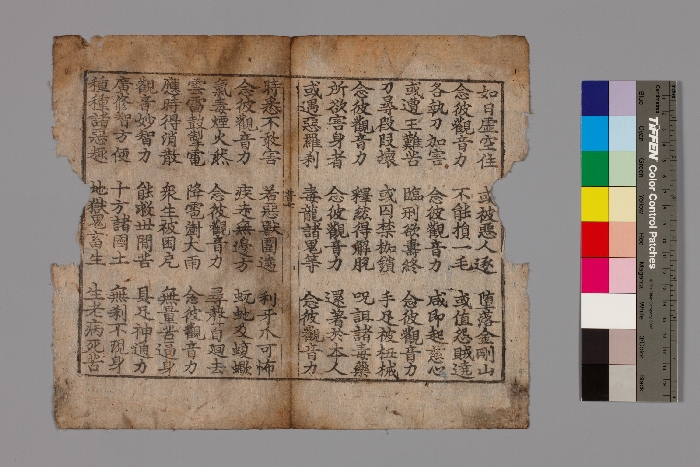 如日虛空住 或被惡人逐 墮落金剛山
念彼觀音力 不能損一毛 或值怨賊遶
各執刀加害 念彼觀音力 咸即起慈心
或遭王難苦 臨刑欲壽終 念彼觀音力
刀尋段段壞 或囚禁枷鎖 手足被杻械
念彼觀音力 釋然得解脫 呪詛諸毒藥
所欲害身者 念彼觀音力 還著於本人
或遇惡羅刹 毒龍諸鬼等 念彼觀音力
時悉不敢害 若惡獸圍遶 利牙爪可怖
念彼觀音力 疾走無邊方 蚖虵及蝮蠍
氣毒煙火燃 念彼觀音力 尋聲自迴去
雲雷鼓掣電 降雹澍大雨 念彼觀音力
應時得消散 衆生被困厄 無量苦逼身
觀音妙智力 能救世間苦 具足神通力
廣修智方便 十方諸國土 無刹不現身
種種諸惡趣 地獄鬼畜生 生老病死苦
TIFFEN Color Control Patches
Blue
Cyan
Green
Yellow
Red
Magenta
White
3/Color
Black